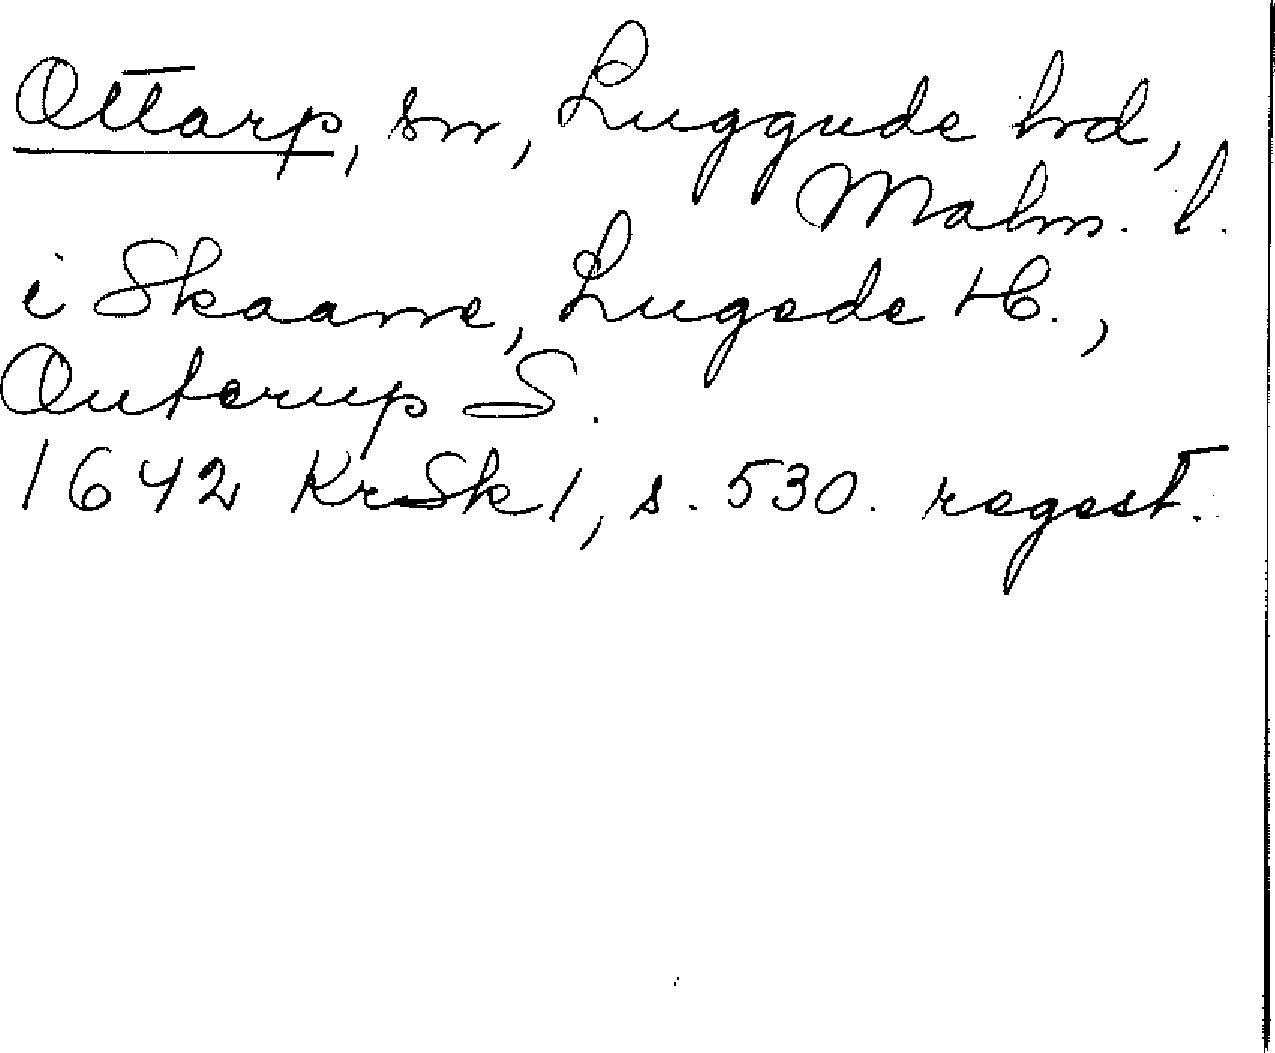 Ottarp, sn, Luggude hrd,
Malm. l.
i Skaane, Lugede H.,
Outerup S.
1642 KrSk1, s. 530. regest.